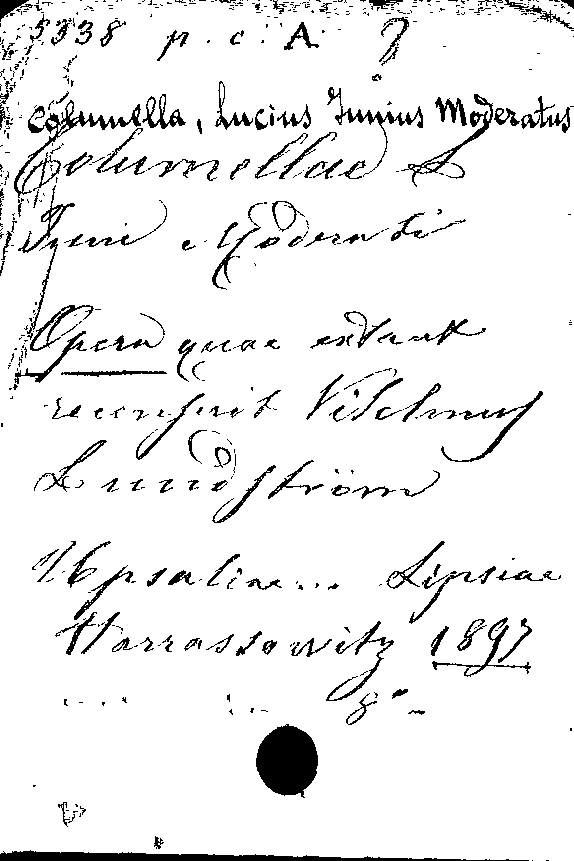 5338 p. c. A. 8
Columella, Lucius Junius Moderatus
Columellae L
Juni Moderati
Opera quae extant
recensuit Vilelmus
Lundström
Upsaliae... Lipsiae
Harrassowitz 1897
.... ... 8°